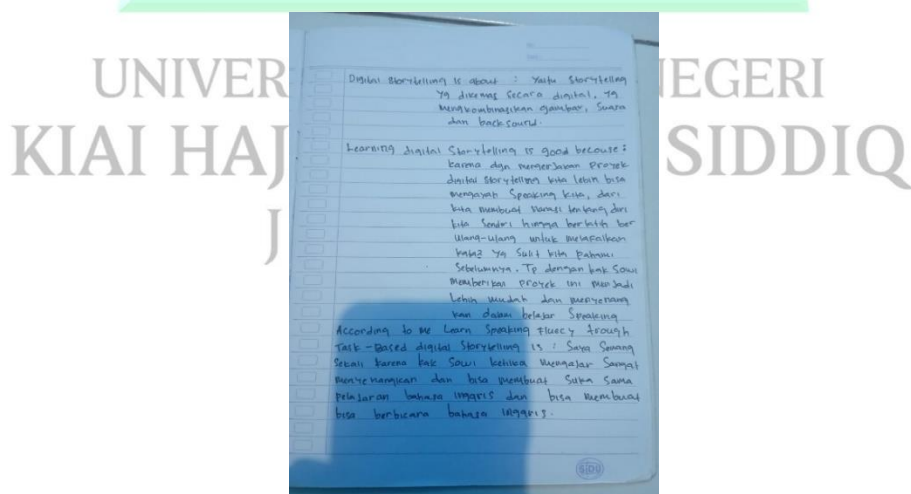 UNIVER NEGERI
KIAI HAJ SIDDIQ
J
Digital Storytelling is about : Yaitu Storytelling
yg dikemas secara digital, yg
mengkombinasikan gambar, Suara
dan backsound.
Learning digital Storytelling is good becouse :
Karena dgn mengerjakan Proyek
digital Storytelling kita lebih bisa
mengasah Speaking kita, dari
kita membuat narasi tentang diri
kita Sendiri hingga berlatih ber
ulang-ulang untuk melafalkan
kata2 yg Sulit kita pahami
Sebelumnya. Tp dengan kak Sowi
memberikan Proyek ini menjadi
Lebih mudah dan menyenang
kan dalam belajar Speaking
According to me Learn Speaking Fluecy trough
Task-Based digital Storytelling is : Saya Senang
Sekali karena kak Sowi ketika mengajar Sangat
menyenangkan dan bisa membuat Suka Sama
pelajaran bahasa inggris dan bisa membuat
bisa berbicara bahasa inggris.
SIDU